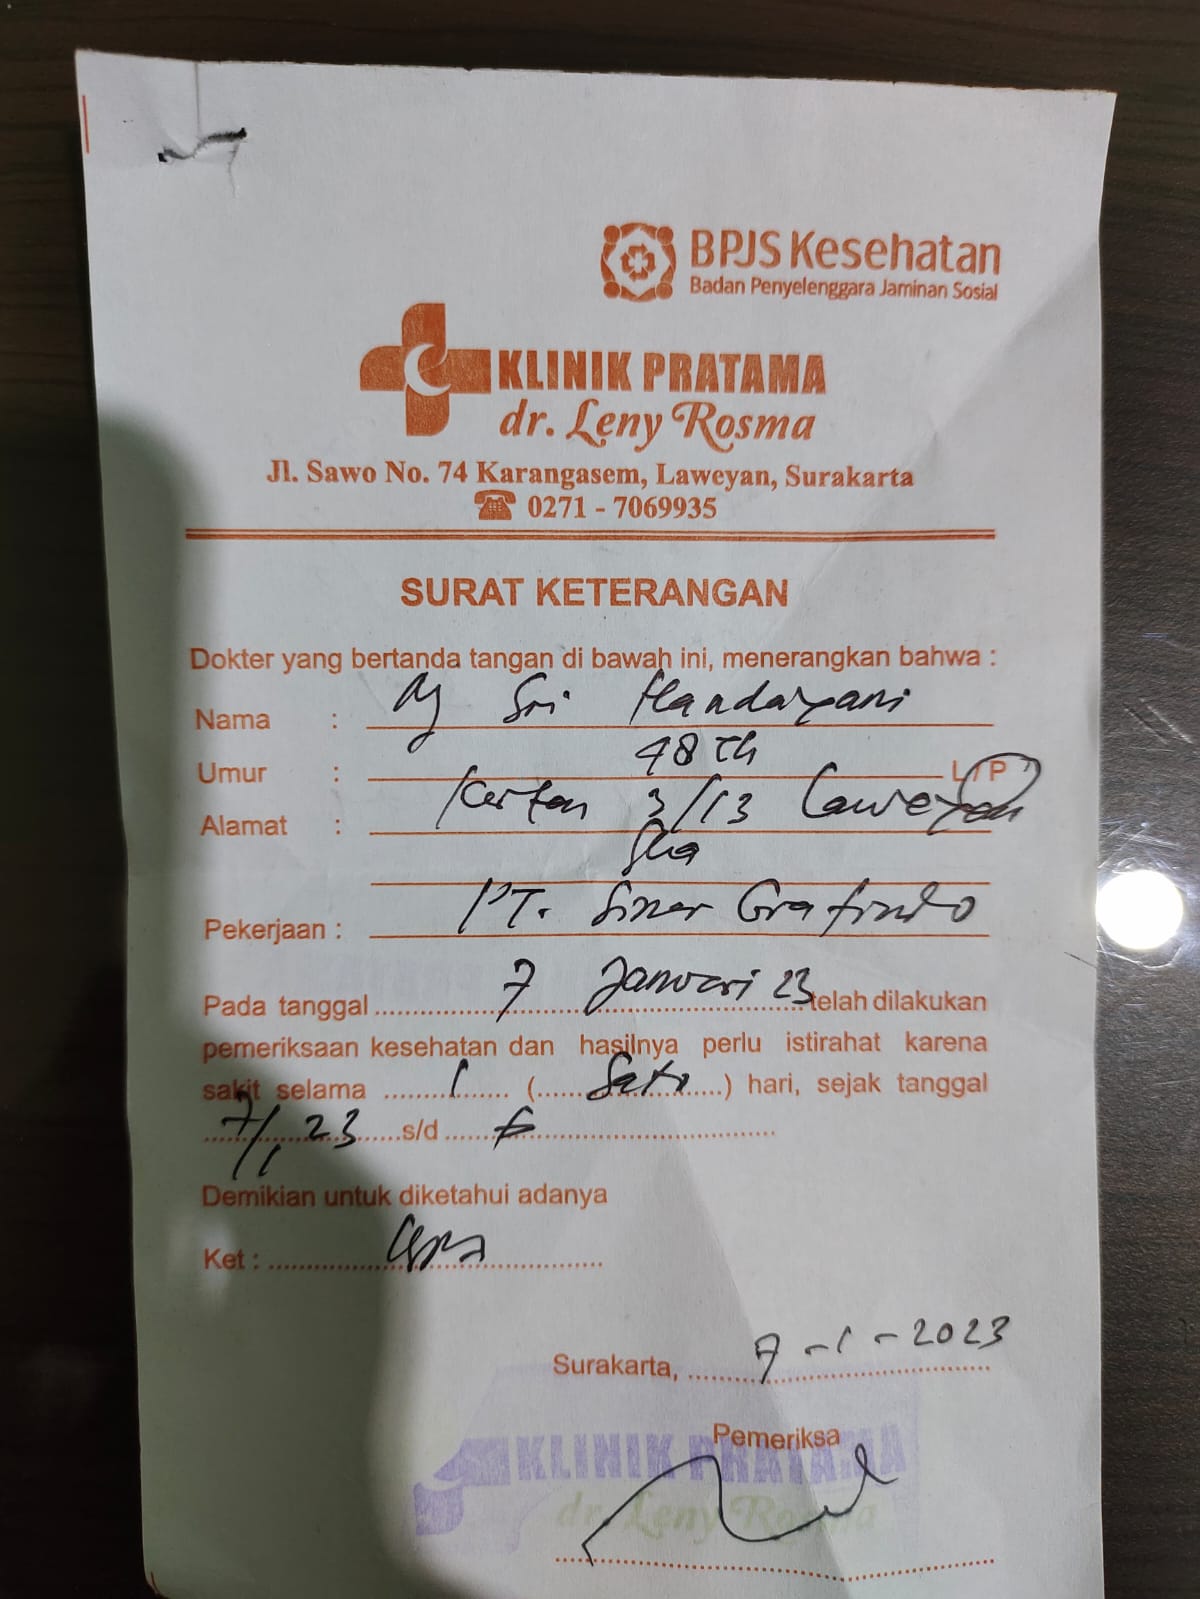 BPJS Kesehatan
Badan Penyelenggara Jaminan Sosial
KLINIK PRATAMA
dr. Leny Rosma
Jl. Sawo No. 74 Karangasem, Laweyan, Surakarta
☎ 0271 - 7069935
SURAT KETERANGAN
Dokter yang bertanda tangan di bawah ini, menerangkan bahwa :
Nama : Ny Sri Handayani
Umur : 48 th L / P
Alamat : Kerten 3/13 Laweyan
Ska
Pekerjaan : PT. Sinar Grafindo
Pada tanggal 7 Januari 23 telah dilakukan
pemeriksaan kesehatan dan hasilnya perlu istirahat karena
sakit selama 1 (Satu) hari, sejak tanggal
7/1 23 s/d
Demikian untuk diketahui adanya
Ket :
Surakarta, 7-1-2023
Pemeriksa
KLINIK PRATAMA
dr. Leny Rosma